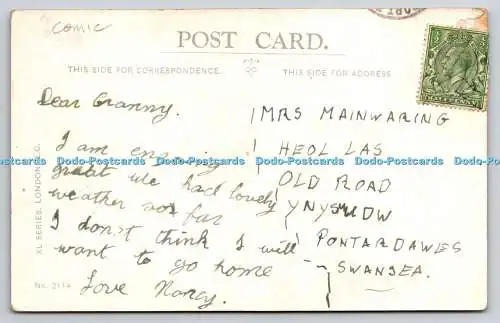 comic
POST CARD.
THIS SIDE FOR CORRESPONDENCE.
THIS SIDE FOR ADDRESS
Dear Granny.
I am
great we had lovely
weather so far
I don't think I will
want to go home
Love Nancy.
MRS MAINWARING
HEOL LAS
OLD ROAD
PONTARDAWLES
SWANSEA.
XL SERIES, LONDON, E.C.
Dodo-Postcards Dodo-Postcards Dodo-Postcards Dodo-Postcards Dodo-Postcards